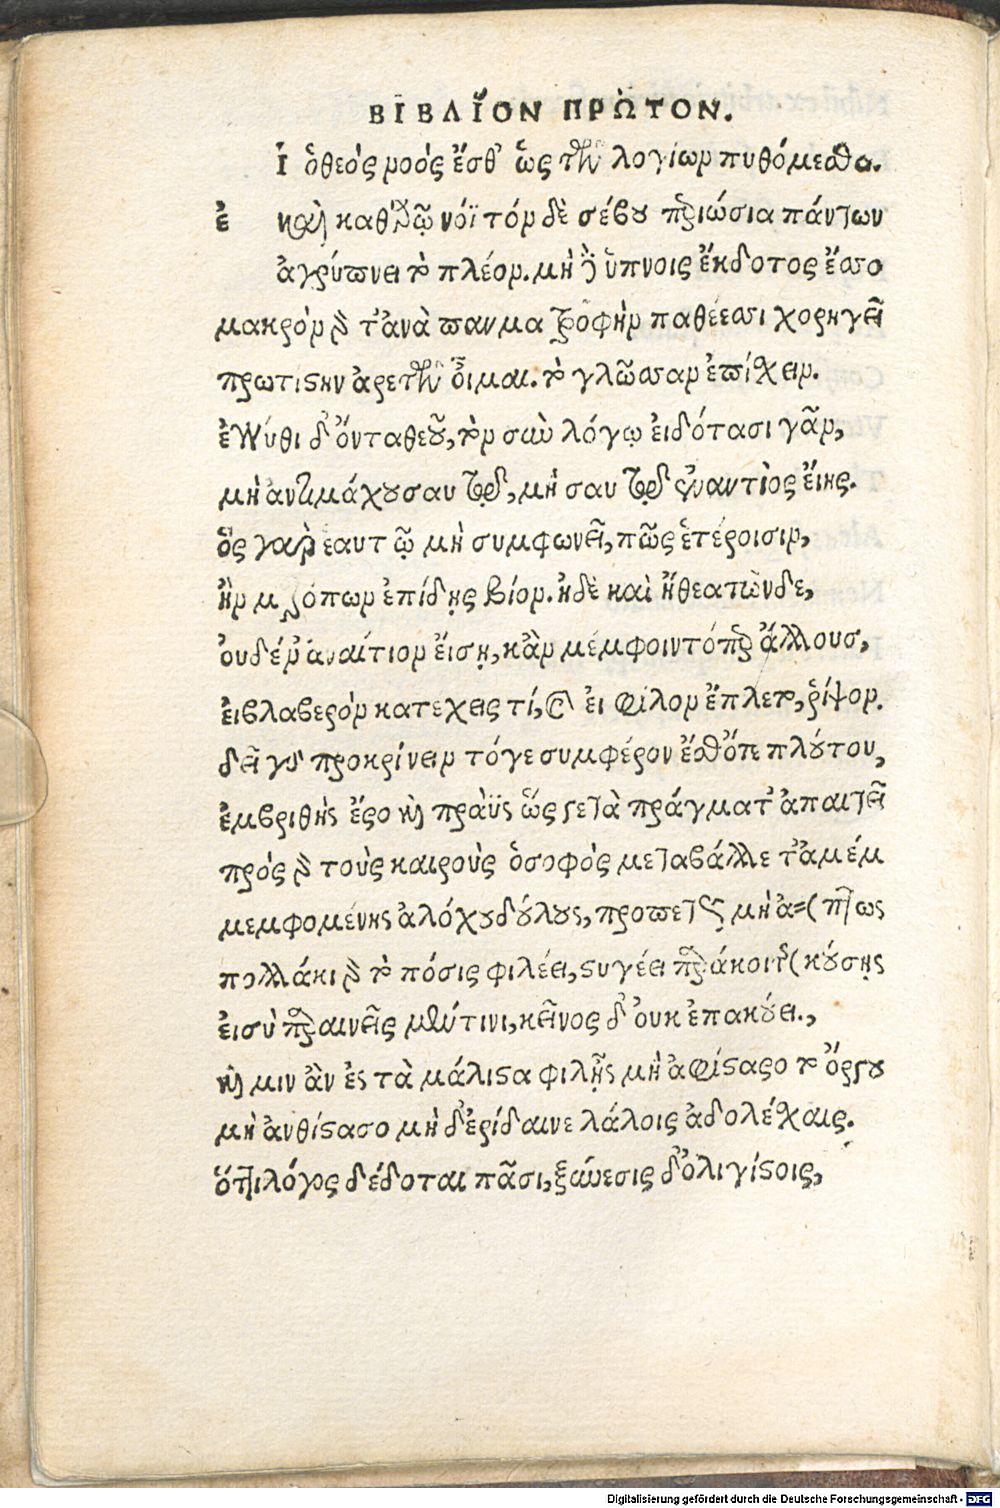 ΒΙΒΛΙΟΝ ΠΡΩΤΟΝ.
Ἰ ὁ θεὸς νοός ἔσθ' ὥς τῶν λογίων πυθόμεσθα.
ἐ καθαρῷ νόϊ τόν δὲ σέβου πάντων
ἀγρύπνει τὸ πλέον. μὴ δ' ὕπνοις ἔκδοτος ἔσσο
μακρὸν γὰρ τ' ἀνὰ παυμα τροφὴν παθέεσσι χορηγεῖ
πρωτίστην ἀρετῶν οἶμαι. τὸ γλῶσσαν ἐπίσχειν.
ἐγγύθι δ' ὄντα θεοῦ, τὸν σὺν λόγῳ εἰδότασι γᾶν,
μὴ ἀντιμάχου σαυτῷ, μὴ σαυτῷ ἐναντίος εἴης.
ὃς γὰρ ἑαυτῷ μὴ συμφωνεῖ, πῶς ἑτέροισιν,
ἢν μερόπων ἐπίδῃς βίον. ἠδὲ καὶ ἤθεα τῶνδε,
οὐδέν' ἀναίτιον εἴσῃ, κἂν μέμφοιντό περ ἄλλους,
εἰ βλαβερὸν κατεχεις τί, καὶ εἰ φίλον ἔπλετο, ῥίψον.
δεῖ γὰρ προκρίνειν τόγε συμφέρον ἔσθ' ὅτε πλούτου,
ἐμβριθὴς ἔσο καὶ πρᾶϋς ὥς γε τὰ πράγματ' ἀπαιτεῖ
πρός γὰρ τοὺς καιροὺς ὁ σοφὸς μεταβάλλε τ' ἀμέμ
μεμφομένης ἀλόχου δούλους, προπετῶς μὴ ἄπως
πολλάκι γὰρ τὸ πόσις φιλέει, στυγέει παράκοιτις κούσης
εἰ σὺ παραινεῖς μὲν τινι, κεῖνος δ' οὐκ ἐπακούει.,
καὶ μιν ἂν ἐς τὰ μάλιστα φιλῇς μὴ ἀφίστασο τὸ ὄργου
μὴ ἀνθίστασο μὴ δ' ἐρίδαινε λάλοις ἀδολέχαις.
ὅτι λόγος δέδοται πᾶσι, ξύνεσις δ' ὀλιγίστοις,
Digitalisierung gefördert durch die Deutsche Forschungsgemeinschaft - DFG